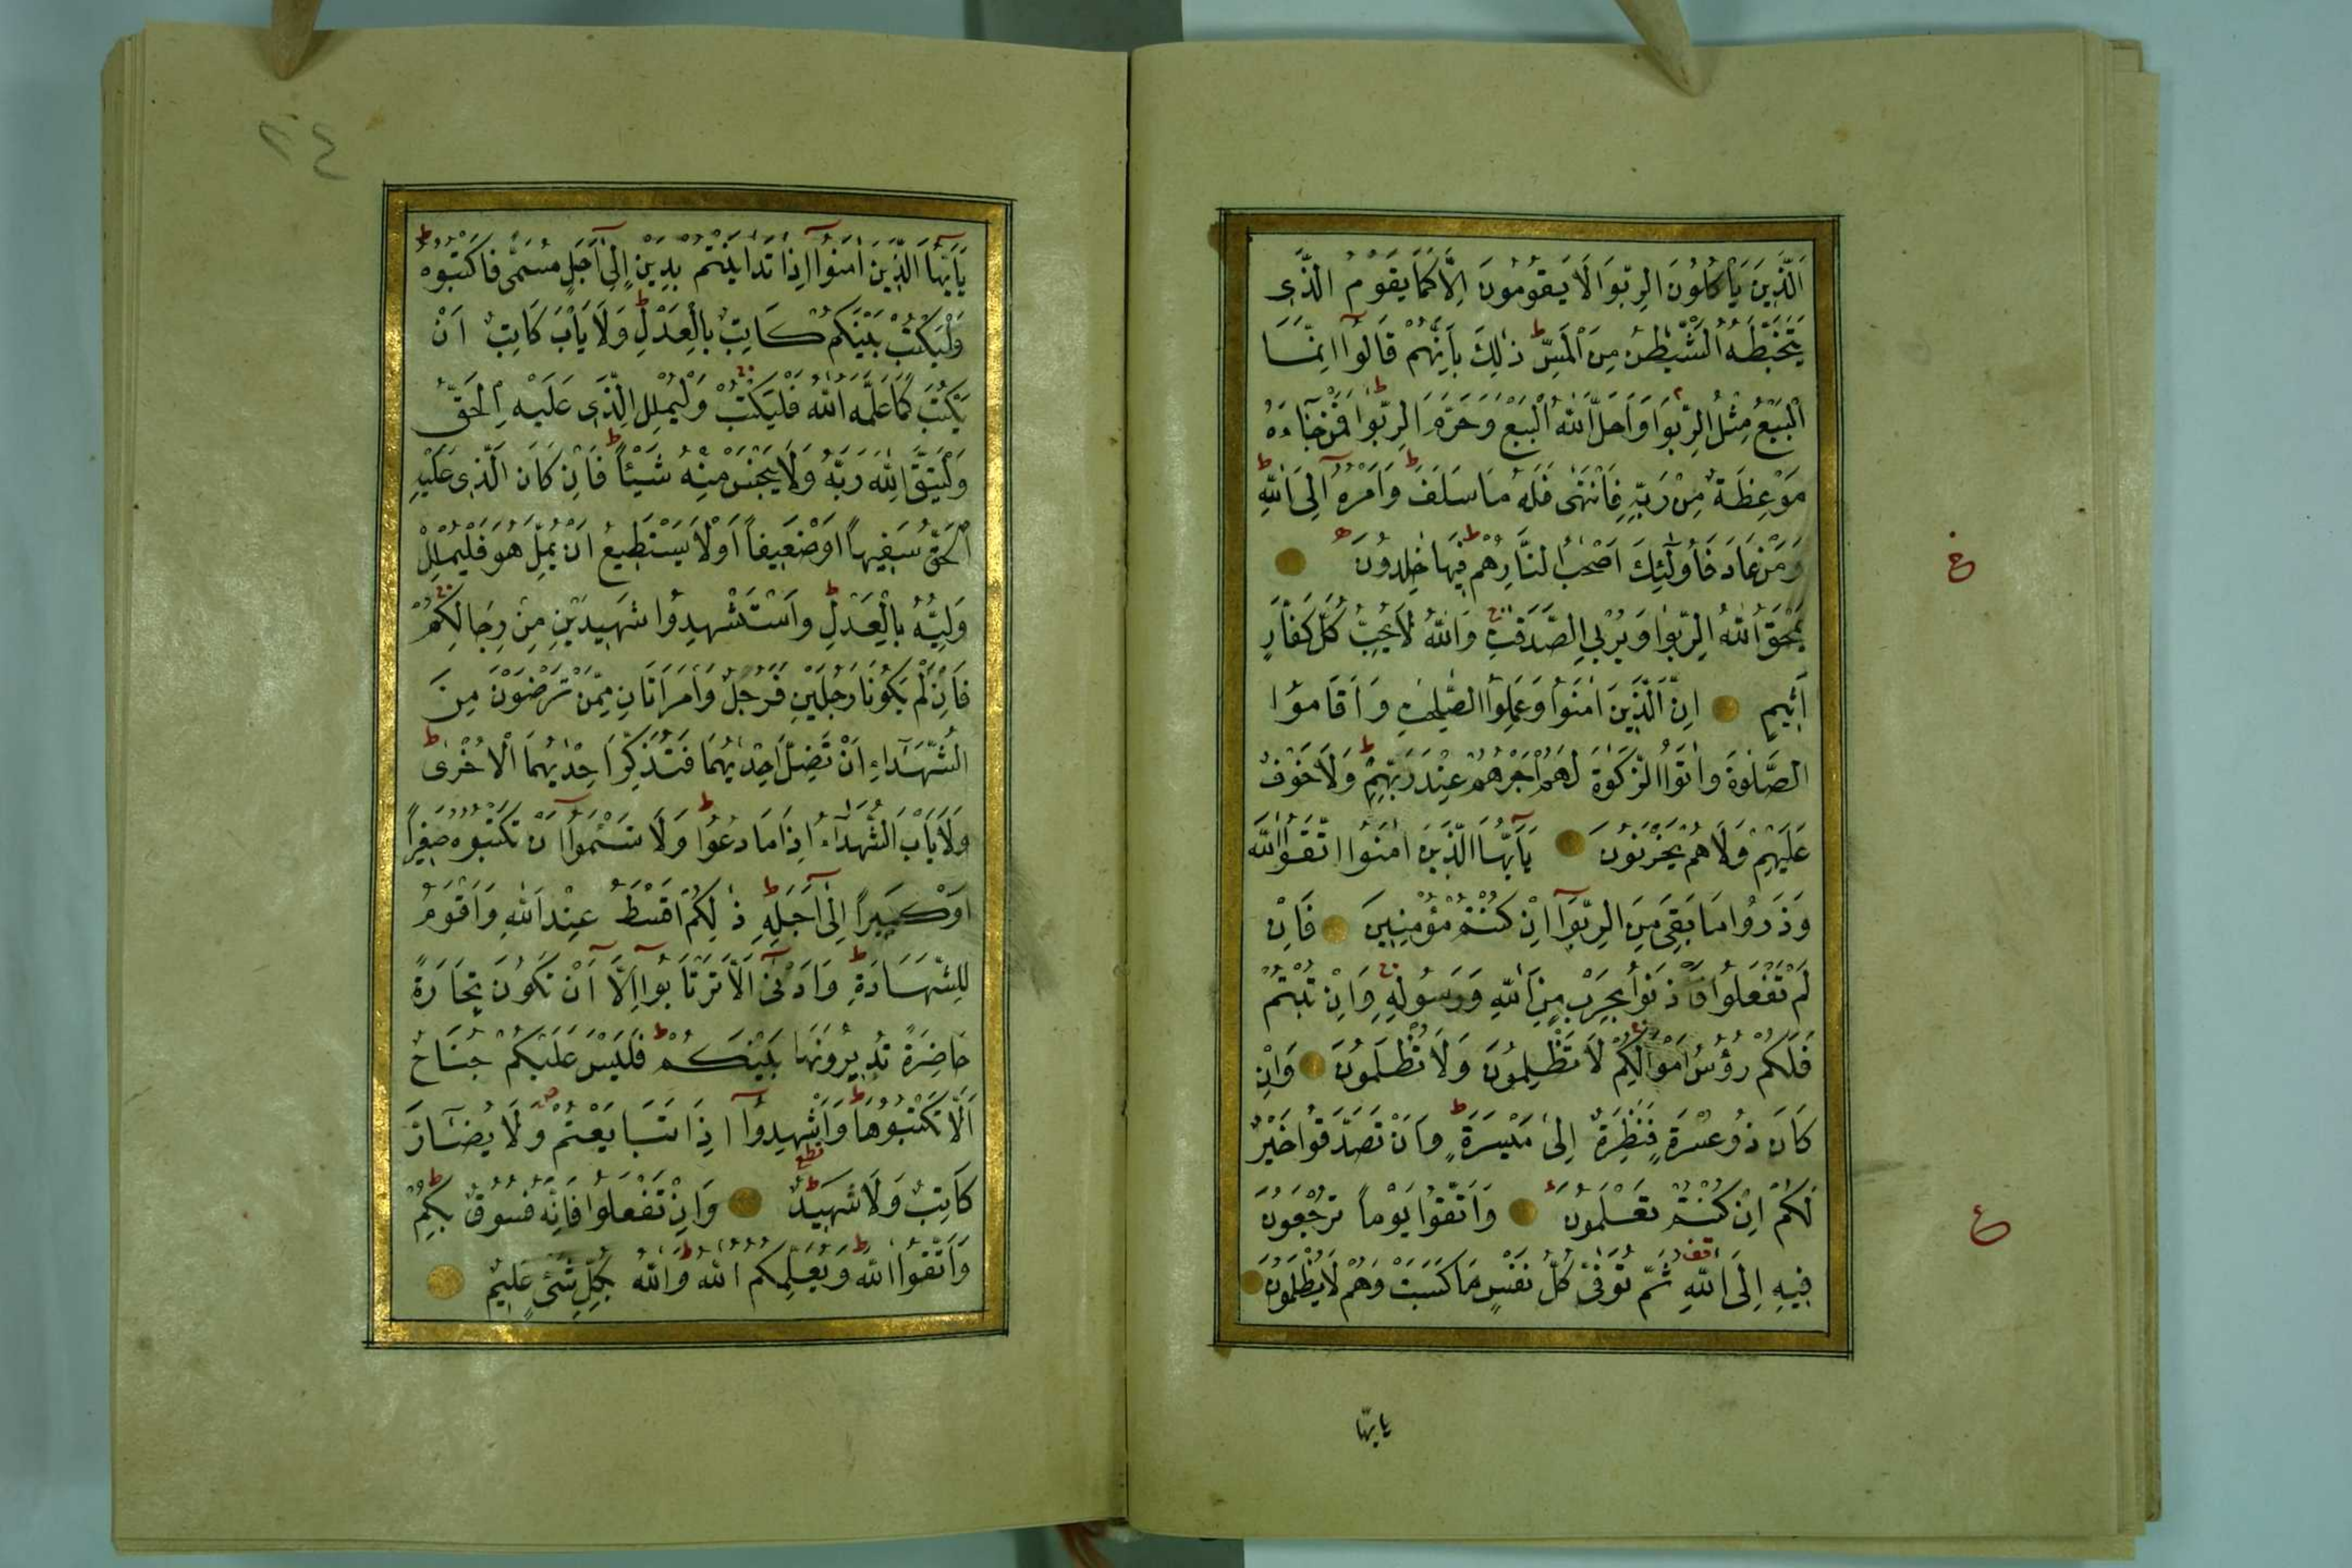 اَلَّذِينَ يَأْكُلُونَ الرِّبٰوا لَا يَقُومُونَ اِلَّا كَمَا يَقُومُ الَّذِى
يَتَخَبَّطُهُ الشَّيْطٰنُ مِنَ الْمَسِّ ط ذٰلِكَ بِاَنَّهُمْ قَالُوٓا اِنَّمَا
الْبَيْعُ مِثْلُ الرِّبٰوا م وَاَحَلَّ اللّٰهُ الْبَيْعَ وَحَرَّمَ الرِّبٰوا ط فَمَنْ جَآءَهُ
مَوْعِظَةٌ مِنْ رَبِّهِ فَانْتَهٰى فَلَهُ مَا سَلَفَ ط وَاَمْرُهُٓ اِلَى اللّٰهِ ط
وَمَنْ عَادَ فَاُولٰٓئِكَ اَصْحٰبُ النَّارِ ط هُمْ فِيهَا خٰلِدُونَ ه
خ
يَمْحَقُ اللّٰهُ الرِّبٰوا وَيُرْبِى الصَّدَقٰتِ ط وَاللّٰهُ لَا يُحِبُّ كُلَّ كَفَّارٍ
اَثِيمٍ اِنَّ الَّذِينَ اٰمَنُوا وَعَمِلُوا الصّٰلِحٰتِ وَاَقَامُوا
الصَّلٰوةَ وَاٰتَوُا الزَّكٰوةَ لَهُمْ اَجْرُهُمْ عِنْدَ رَبِّهِمْ ط وَلَا خَوْفٌ
عَلَيْهِمْ وَلَا هُمْ يَحْزَنُونَ يَآاَيُّهَا الَّذِينَ اٰمَنُوا اتَّقُوا اللّٰهَ
وَذَرُوا مَا بَقِىَ مِنَ الرِّبٰوٓا اِنْ كُنْتُمْ مُؤْمِنِينَ فَاِنْ
لَمْ تَفْعَلُوا فَأْذَنُوا بِحَرْبٍ مِنَ اللّٰهِ وَرَسُولِهِ ج وَاِنْ تُبْتُمْ
فَلَكُمْ رُؤُسُ اَمْوَالِكُمْ ج لَا تَظْلِمُونَ وَلَا تُظْلَمُونَ وَاِنْ
كَانَ ذُو عُسْرَةٍ فَنَظِرَةٌ اِلٰى مَيْسَرَةٍ ط وَاَنْ تَصَدَّقُوا خَيْرٌ
لَكُمْ اِنْ كُنْتُمْ تَعْلَمُونَ وَاتَّقُوا يَوْمًا تُرْجَعُونَ
ع
فِيهِ اِلَى اللّٰهِ ثُمَّ تُوَفّٰى كُلُّ نَفْسٍ مَا كَسَبَتْ وَهُمْ لَا يُظْلَمُونَ
يايها
يَآاَيُّهَا الَّذِينَ اٰمَنُوٓا اِذَا تَدَايَنْتُمْ بِدَيْنٍ اِلٰٓى اَجَلٍ مُسَمًّى فَاكْتُبُوهُ ط
وَلْيَكْتُبْ بَيْنَكُمْ كَاتِبٌ بِالْعَدْلِ ط وَلَا يَأْبَ كَاتِبٌ اَنْ
يَكْتُبَ كَمَا عَلَّمَهُ اللّٰهُ فَلْيَكْتُبْ ج وَلْيُمْلِلِ الَّذِى عَلَيْهِ الْحَقُّ
وَلْيَتَّقِ اللّٰهَ رَبَّهُ وَلَا يَبْخَسْ مِنْهُ شَيْئًا ط فَاِنْ كَانَ الَّذِى عَلَيْهِ
الْحَقُّ سَفِيهًا اَوْ ضَعِيفًا اَوْ لَا يَسْتَطِيعُ اَنْ يُمِلَّ هُوَ فَلْيُمْلِلْ
وَلِيُّهُ بِالْعَدْلِ ط وَاسْتَشْهِدُوا شَهِيدَيْنِ مِنْ رِجَالِكُمْ ج
فَاِنْ لَمْ يَكُونَا رَجُلَيْنِ فَرَجُلٌ وَامْرَاَتَانِ مِمَّنْ تَرْضَوْنَ مِنَ
الشُّهَدَآءِ اَنْ تَضِلَّ اِحْدٰيهُمَا فَتُذَكِّرَ اِحْدٰيهُمَا الْاُخْرٰى ط
وَلَا يَأْبَ الشُّهَدَآءُ اِذَا مَا دُعُوا ط وَلَا تَسْئَمُوٓا اَنْ تَكْتُبُوهُ صَغِيرًا
اَوْ كَبِيرًا اِلٰٓى اَجَلِهِ ط ذٰلِكُمْ اَقْسَطُ عِنْدَ اللّٰهِ وَاَقْوَمُ
لِلشَّهَادَةِ وَاَدْنٰٓى اَلَّا تَرْتَابُوٓا اِلَّٓا اَنْ تَكُونَ تِجَارَةً
حَاضِرَةً تُدِيرُونَهَا بَيْنَكُمْ ط فَلَيْسَ عَلَيْكُمْ جُنَاحٌ
اَلَّا تَكْتُبُوهَا ط وَاَشْهِدُوٓا اِذَا تَبَايَعْتُمْ ص وَلَا يُضَآرَّ
كَاتِبٌ وَلَا شَهِيدٌ ط وَاِنْ تَفْعَلُوا فَاِنَّهُ فُسُوقٌ بِكُمْ ط
وَاتَّقُوا اللّٰهَ ط وَيُعَلِّمُكُمُ اللّٰهُ ط وَاللّٰهُ بِكُلِّ شَىْءٍ عَلِيمٌ